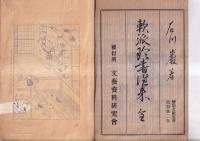 石川巖著
軟派珍書往来 全
發行所 文藝資料研究會